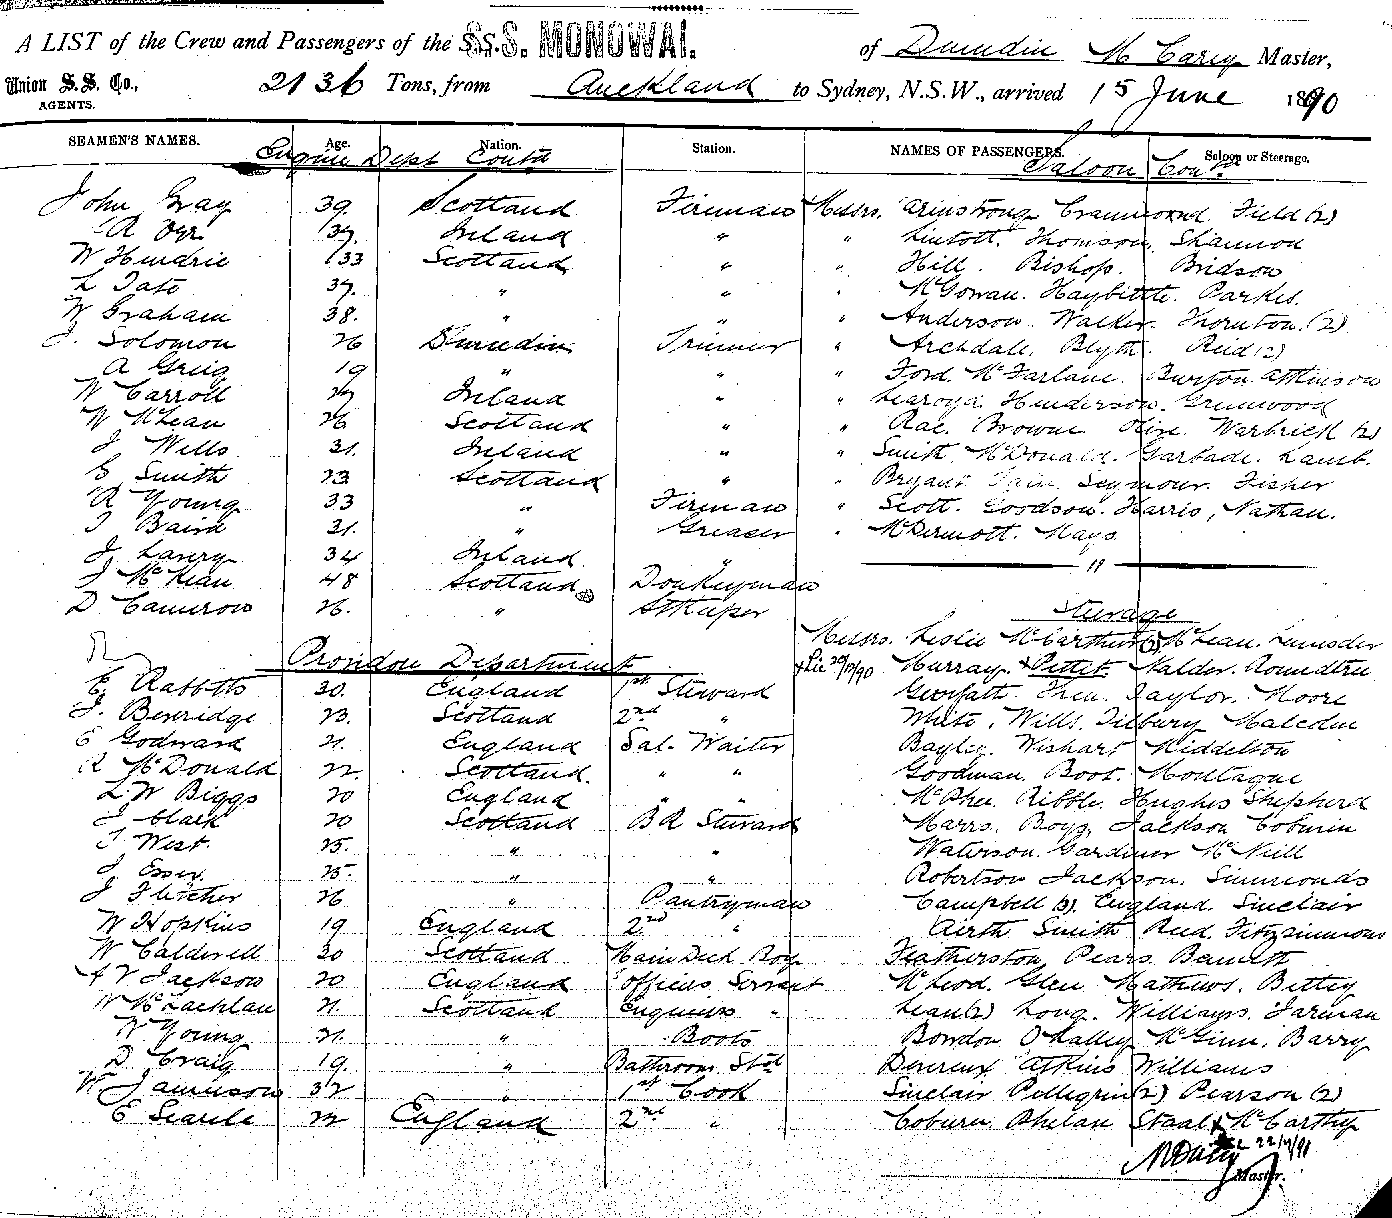 A LIST of the Crew and Passengers of the S.S. MONOWAI. of Dunedin M Carey Master,
Union S. S. Co., AGENTS. 2136 Tons, from Auckland to Sydney, N.S.W., arrived 15 June 1890
SEAMEN'S NAMES. Age. Nation. Station. NAMES OF PASSENGERS. Saloon or Steerage.
Engine Dept Contd Saloon Cond
John Gray 39. Scotland Fireman Messrs. Armstrong Crammond Field (2)
A Orr 37. Ireland " " Lintott. Thomson. Shannon
W Hendrie 33 Scotland " " Hill. Bishop. Bridson
L Tate 37. " " " McGowan. Haybittle. Parkes.
W Graham 38. " " " Anderson. Walker. Thornton. (2)
J. Solomon 26 Dunedin Trimmer " Archdall. Blyth. Reid (2)
A Greig 19 " " " Ford. McFarlane. Burton. Attkinson
W Carroll 27 Ireland " " Learoyd. Henderson. Greenwood
W McLean 26 Scotland " " Rae. Browne Olive. Warbrick (2)
J Wells 31. Ireland " " Smith. McDonald. Garbade. Lamb.
E Smith 23 Scotland " " Bryant Seymour. Fisher
R Young 33 " Fireman " Scott. Goodson. Harris, Nathan.
J Baird 31. " Greaser " McDermott. Mays
J Lavery 34 Ireland "
J McKean 48 Scotland Donkeyman
D Cameron 26. " Stkeeper
Steerage
Messrs. Leslie McCarthur (3) McLean. Lumsden
Providore Department Murray. Pettet. Nalder. Roundtree
E. Rabbits 30. England 1st Steward Then. Taylor. Moore
J. Beveridge 23. Scotland 2nd " White. Wills. Tilbury. Malcolm
E Godward 21. England Sal. Waiter Bayley. Wishart Middelton
R McDonald 22. Scotland. " " Goodman. Boot. Montague
L. W Biggs 20 England " " McPhee. Ribble. Hughes Shepherd
J Clark 20 Scotland B R Steward Marrs. Boyz. Jackson Coburn
J West. 25. " " Waterson. Gardiner McNeill
J Esser 25. " " Robertson Jackson. Simmonds
J Fletcher 26 " Pantryman Campbell (3). England. Sinclair
W Hopkins 19 England 2nd " Airth Smith Reid. Fitzsimmons
W Calderell 20 Scotland Main Deck Boy Featherston Pears. Bennett
A V Jackson 20 England Officers Servant McLeod. Glen Mathews. Bettey
W McLachlan 21. Scotland Engineers " Lean (2) Long. Williams. Jarman
W Young 21. " Boots Bowdon O'Malley McGinn. Barry
D Craig 19. " Bathroom Std Devereux Atkins Williams
W Jamieson 32 " 1st Cook Sinclair Pellegrin (2) Pearson (2)
E Searle 22 England 2nd " Coburn Phelan Staal McCarthy
Master.